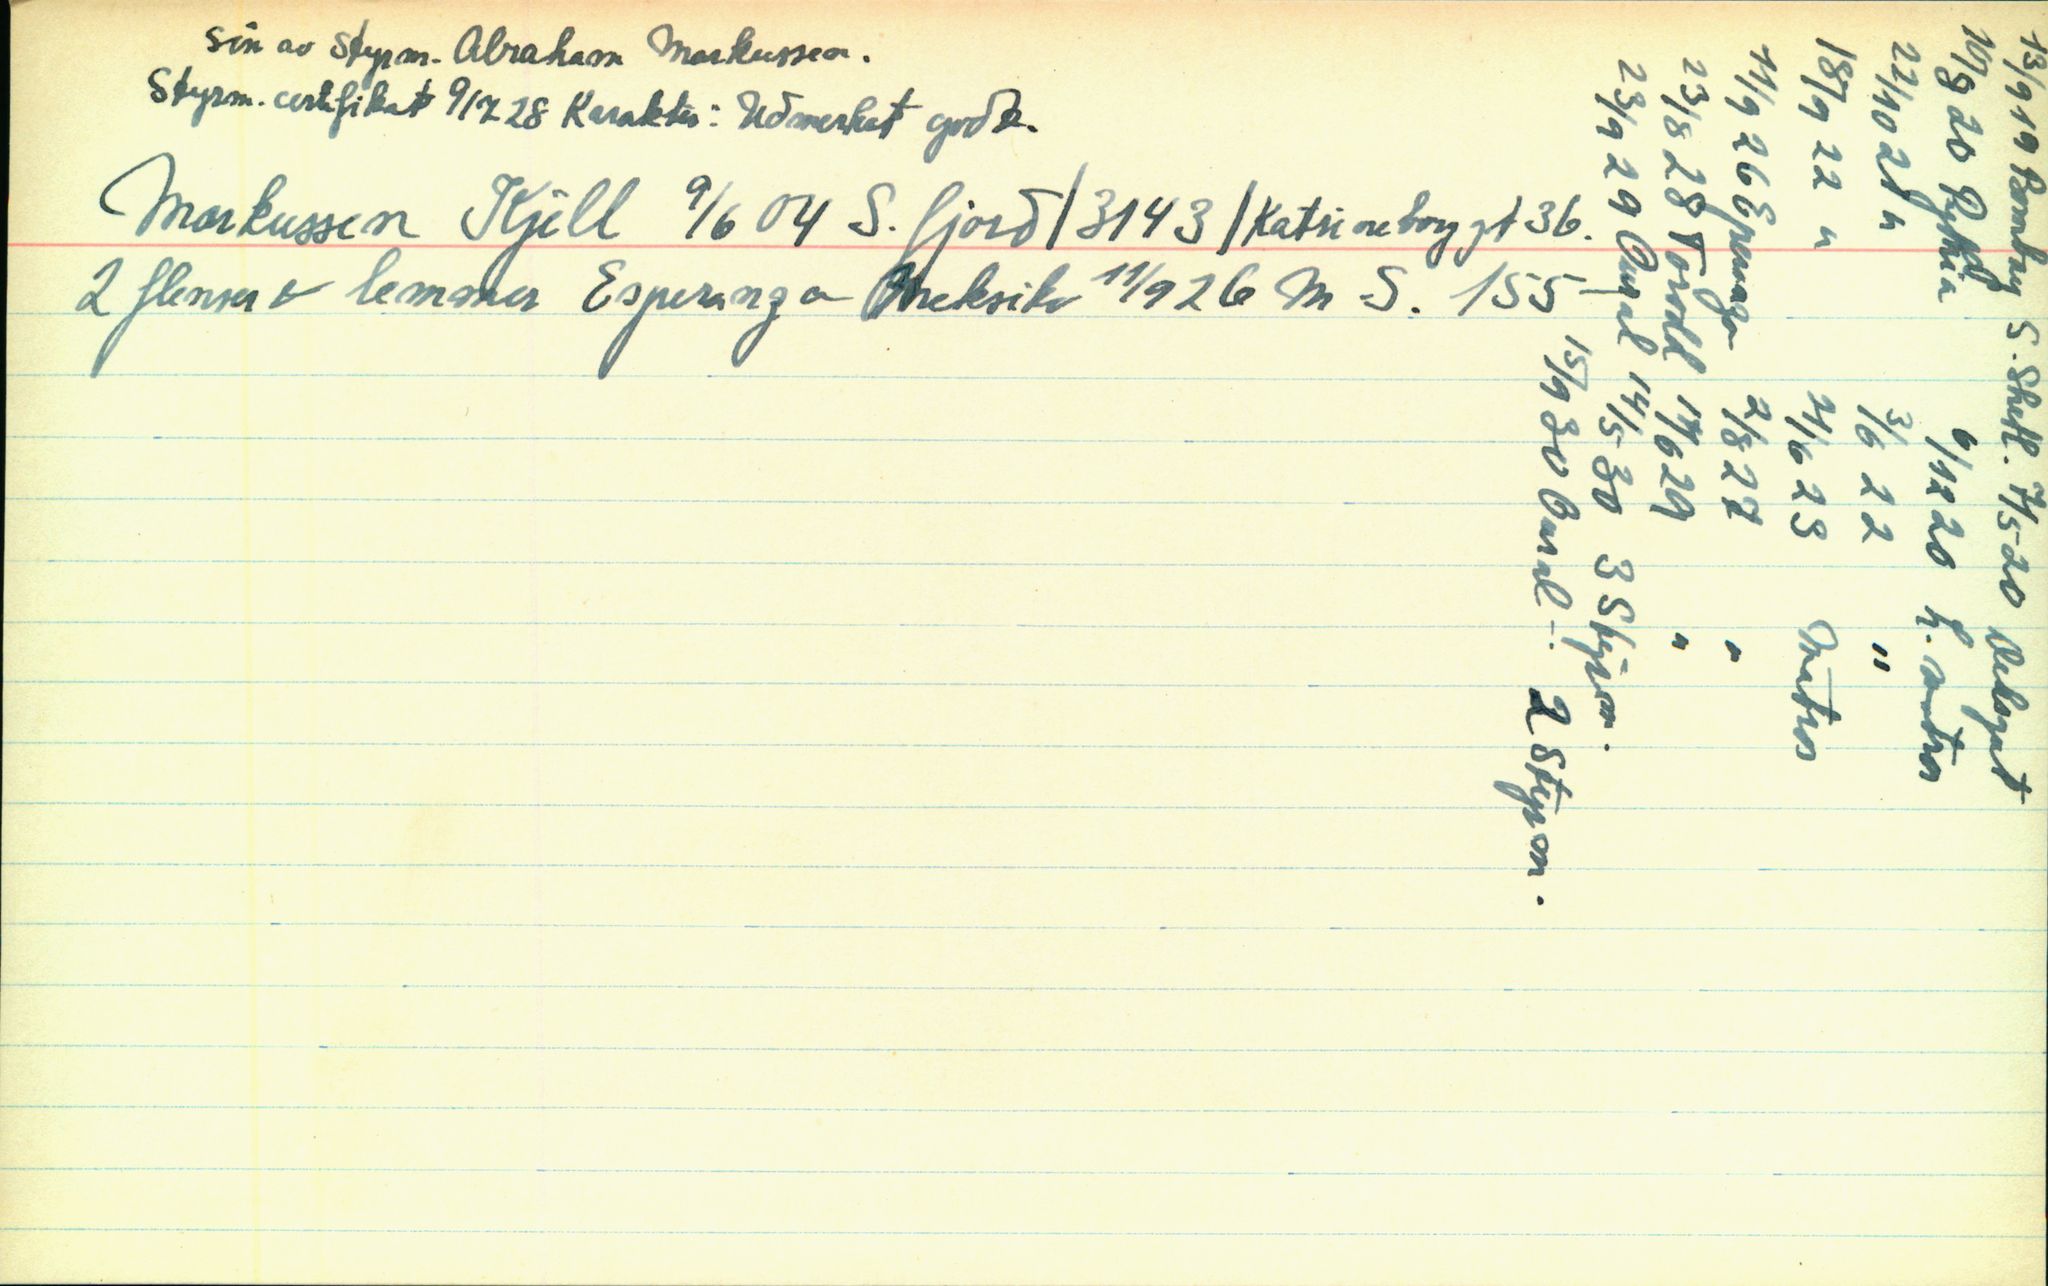 Sön av Styrm. Abraham Markussen.
Styrm. certifikat 9/7 28 Karakter: Udmerket godt.
Markussen Kjell 9/6 04 S. fjord / 3143 / Katrineborg gt 36.
2 flenser & lemmer Esperanza Meksiko 11/9 26 M S. 155
13/9 19 Bombay S. Shetl. 7/5 20 Deksgut
10/9 20 Pythia 6/12 20 L. matros
22/10 21 " 3/6 22 "
18/9 22 " 21/6 23 Matros
11/9 26 Esperanza 2/8 27 "
23/8 28 Torodd 17/6 29 "
23/9 29 Ansal 14/5 30 3 Styrm.
15/9 30 2 Styrm.